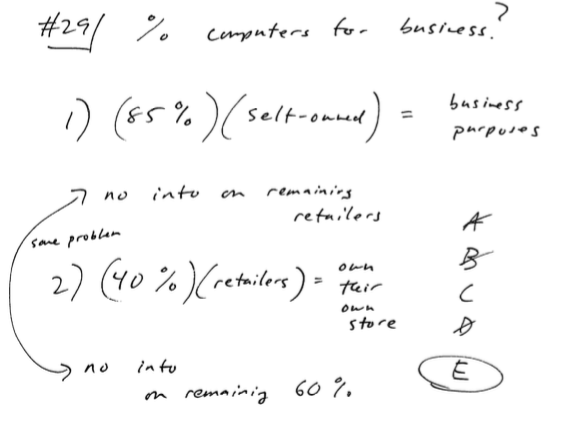 #29/ % computers for business?
1) (85%)(self-owned) = business purposes
no info on remaining retailers
same problem
2) (40%)(retailers) = own their own store
no info on remaining 60%.
A
B
C
D
E